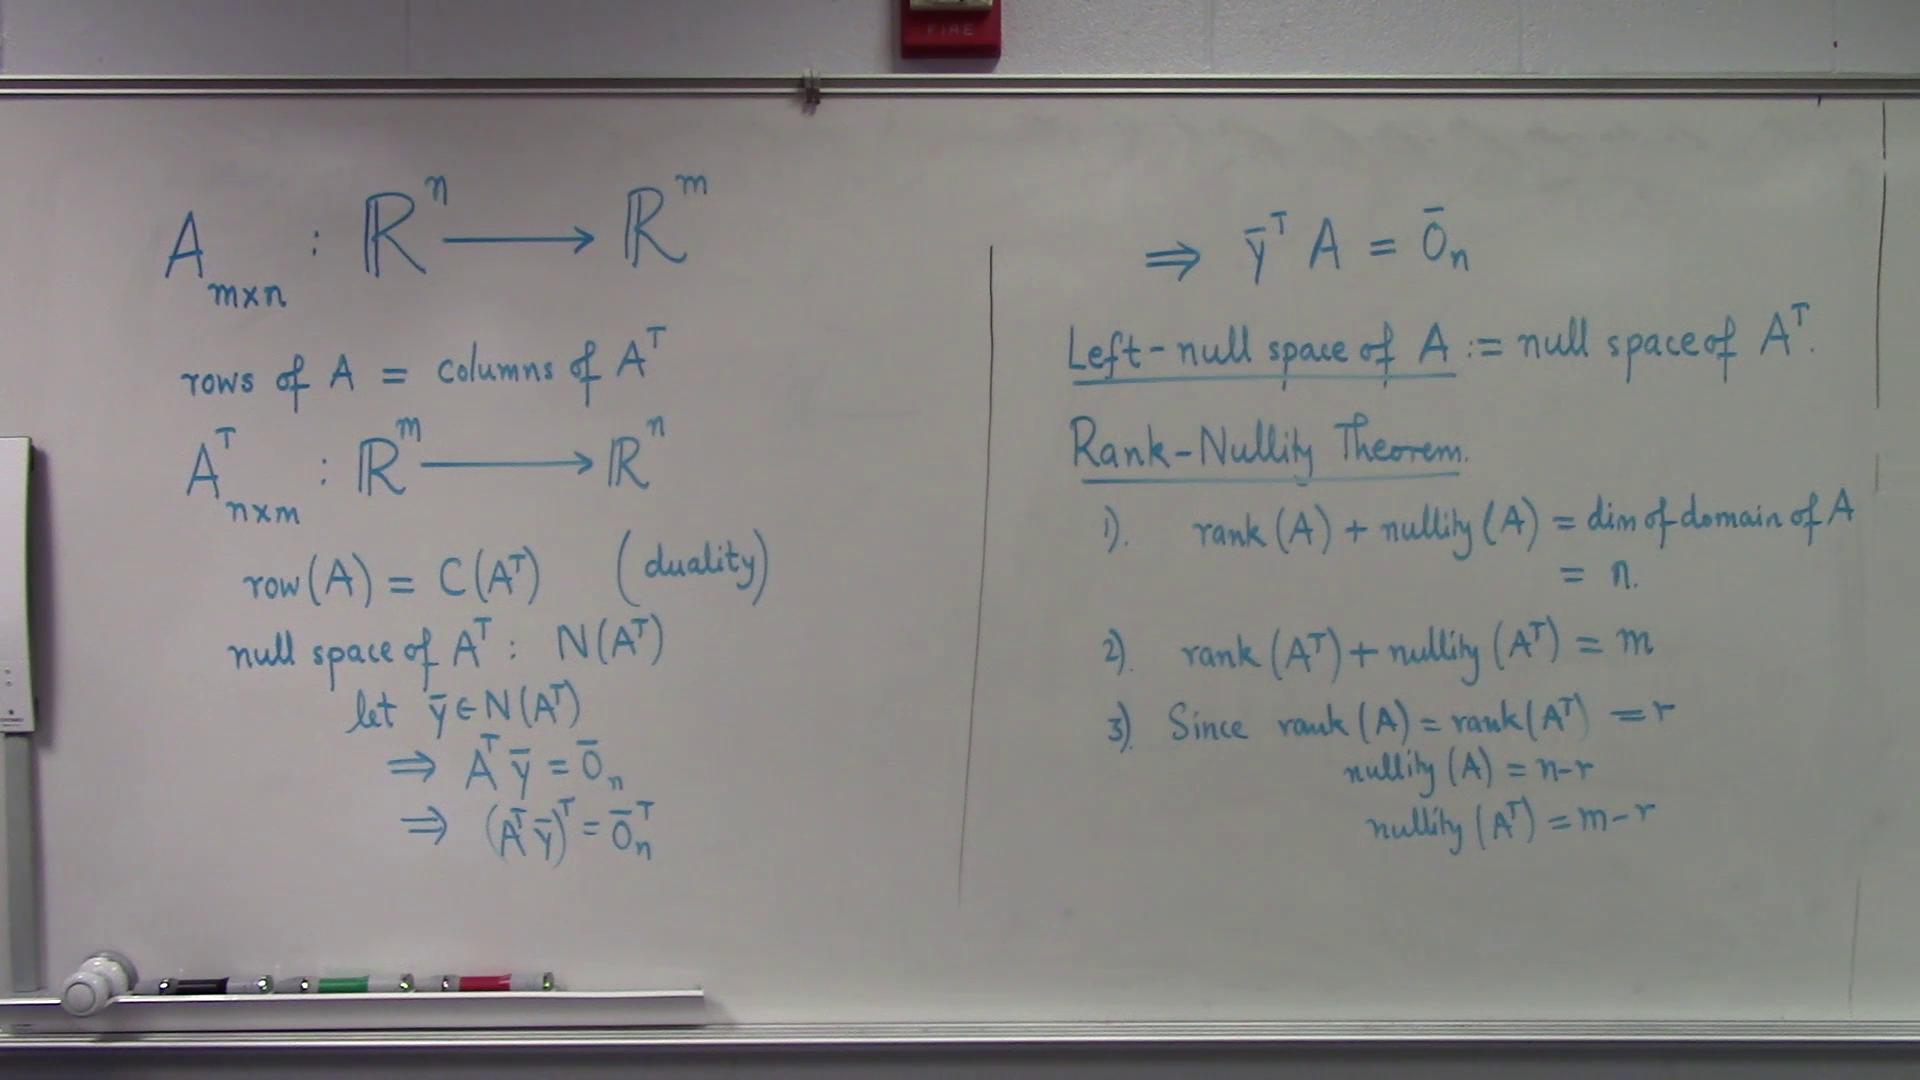 FIRE
A_{m×n} : ℝⁿ ⟶ ℝᵐ
rows of A = columns of Aᵀ
Aᵀ_{n×m} : ℝᵐ ⟶ ℝⁿ
row(A) = C(Aᵀ) (duality)
null space of Aᵀ : N(Aᵀ)
let ȳ ∈ N(Aᵀ)
⟹ Aᵀ ȳ = 0̄ₙ
⟹ (Aᵀ ȳ)ᵀ = 0̄ₙᵀ
⟹ ȳᵀ A = 0̄ₙ
Left-null space of A := null space of Aᵀ.
Rank-Nullity Theorem.
1). rank(A) + nullity(A) = dim of domain of A
= n.
2). rank(Aᵀ) + nullity(Aᵀ) = m
3). Since rank(A) = rank(Aᵀ) = r
nullity(A) = n-r
nullity(Aᵀ) = m-r